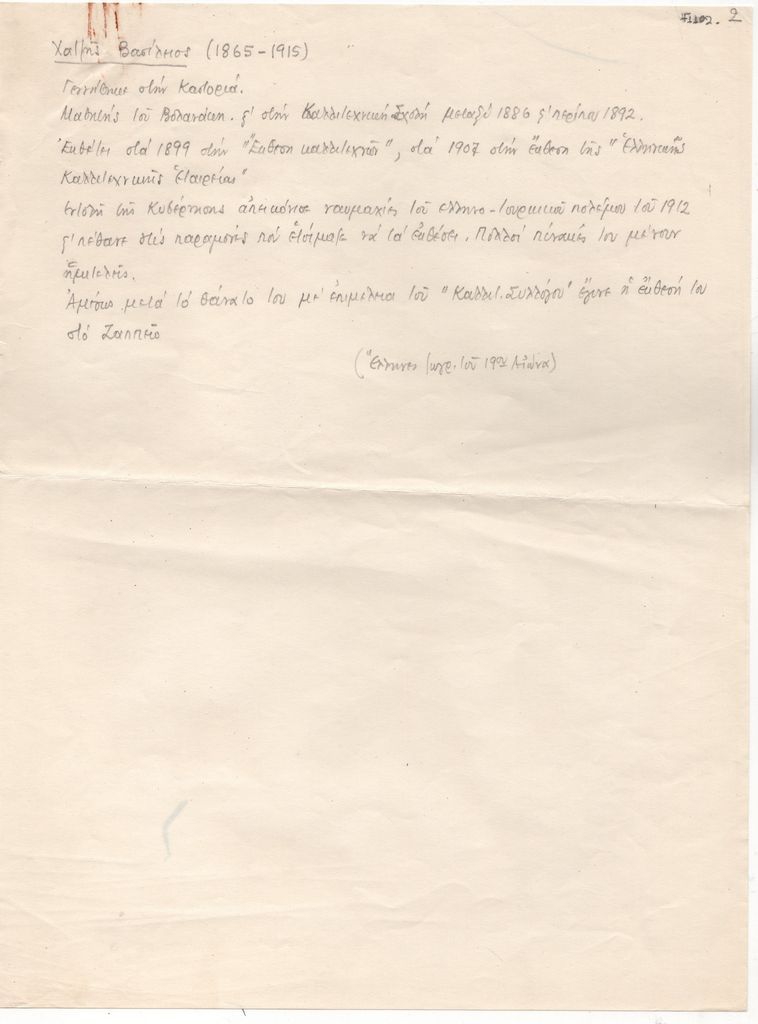 2
Χατζῆς Βασίλειος (1865-1915)
Γεννήθηκε στήν Καστοριά.
Μαθητής τοῦ Βολανάκη. ϛ' στήν Καλλιτεχνική Σχολή μεταξύ 1886 ϛ' περίπου 1892.
Ἐκθέτει στά 1899 στήν "Ἔκθεση καλλιτεχνῶν", στά 1907 στήν ἔκθεση τῆς "Ἑλληνικῆς
Καλλιτεχνικῆς Ἑταιρείας"
Ἐντολή τῆς Κυβέρνησης ἀπεικόνισε ναυμαχίες τοῦ ελληνο-τουρκικοῦ πολέμου τοῦ 1912
ϛ' πέθανε στίς παραμονές πού ἑτοίμαζε νά τά ἐκθέσει. Πολλοί πίνακές του μένουν
ἡμιτελεῖς.
Ἀμέσως μετά τό θάνατό του μέ ἐπιμέλεια τοῦ "Καλλιτ. Συλλόγου" ἔγινε ἡ ἔκθεσή του
στό Ζαππειο
(Ἕλληνες ζωγρ. τοῦ 19ου Αἰώνα)